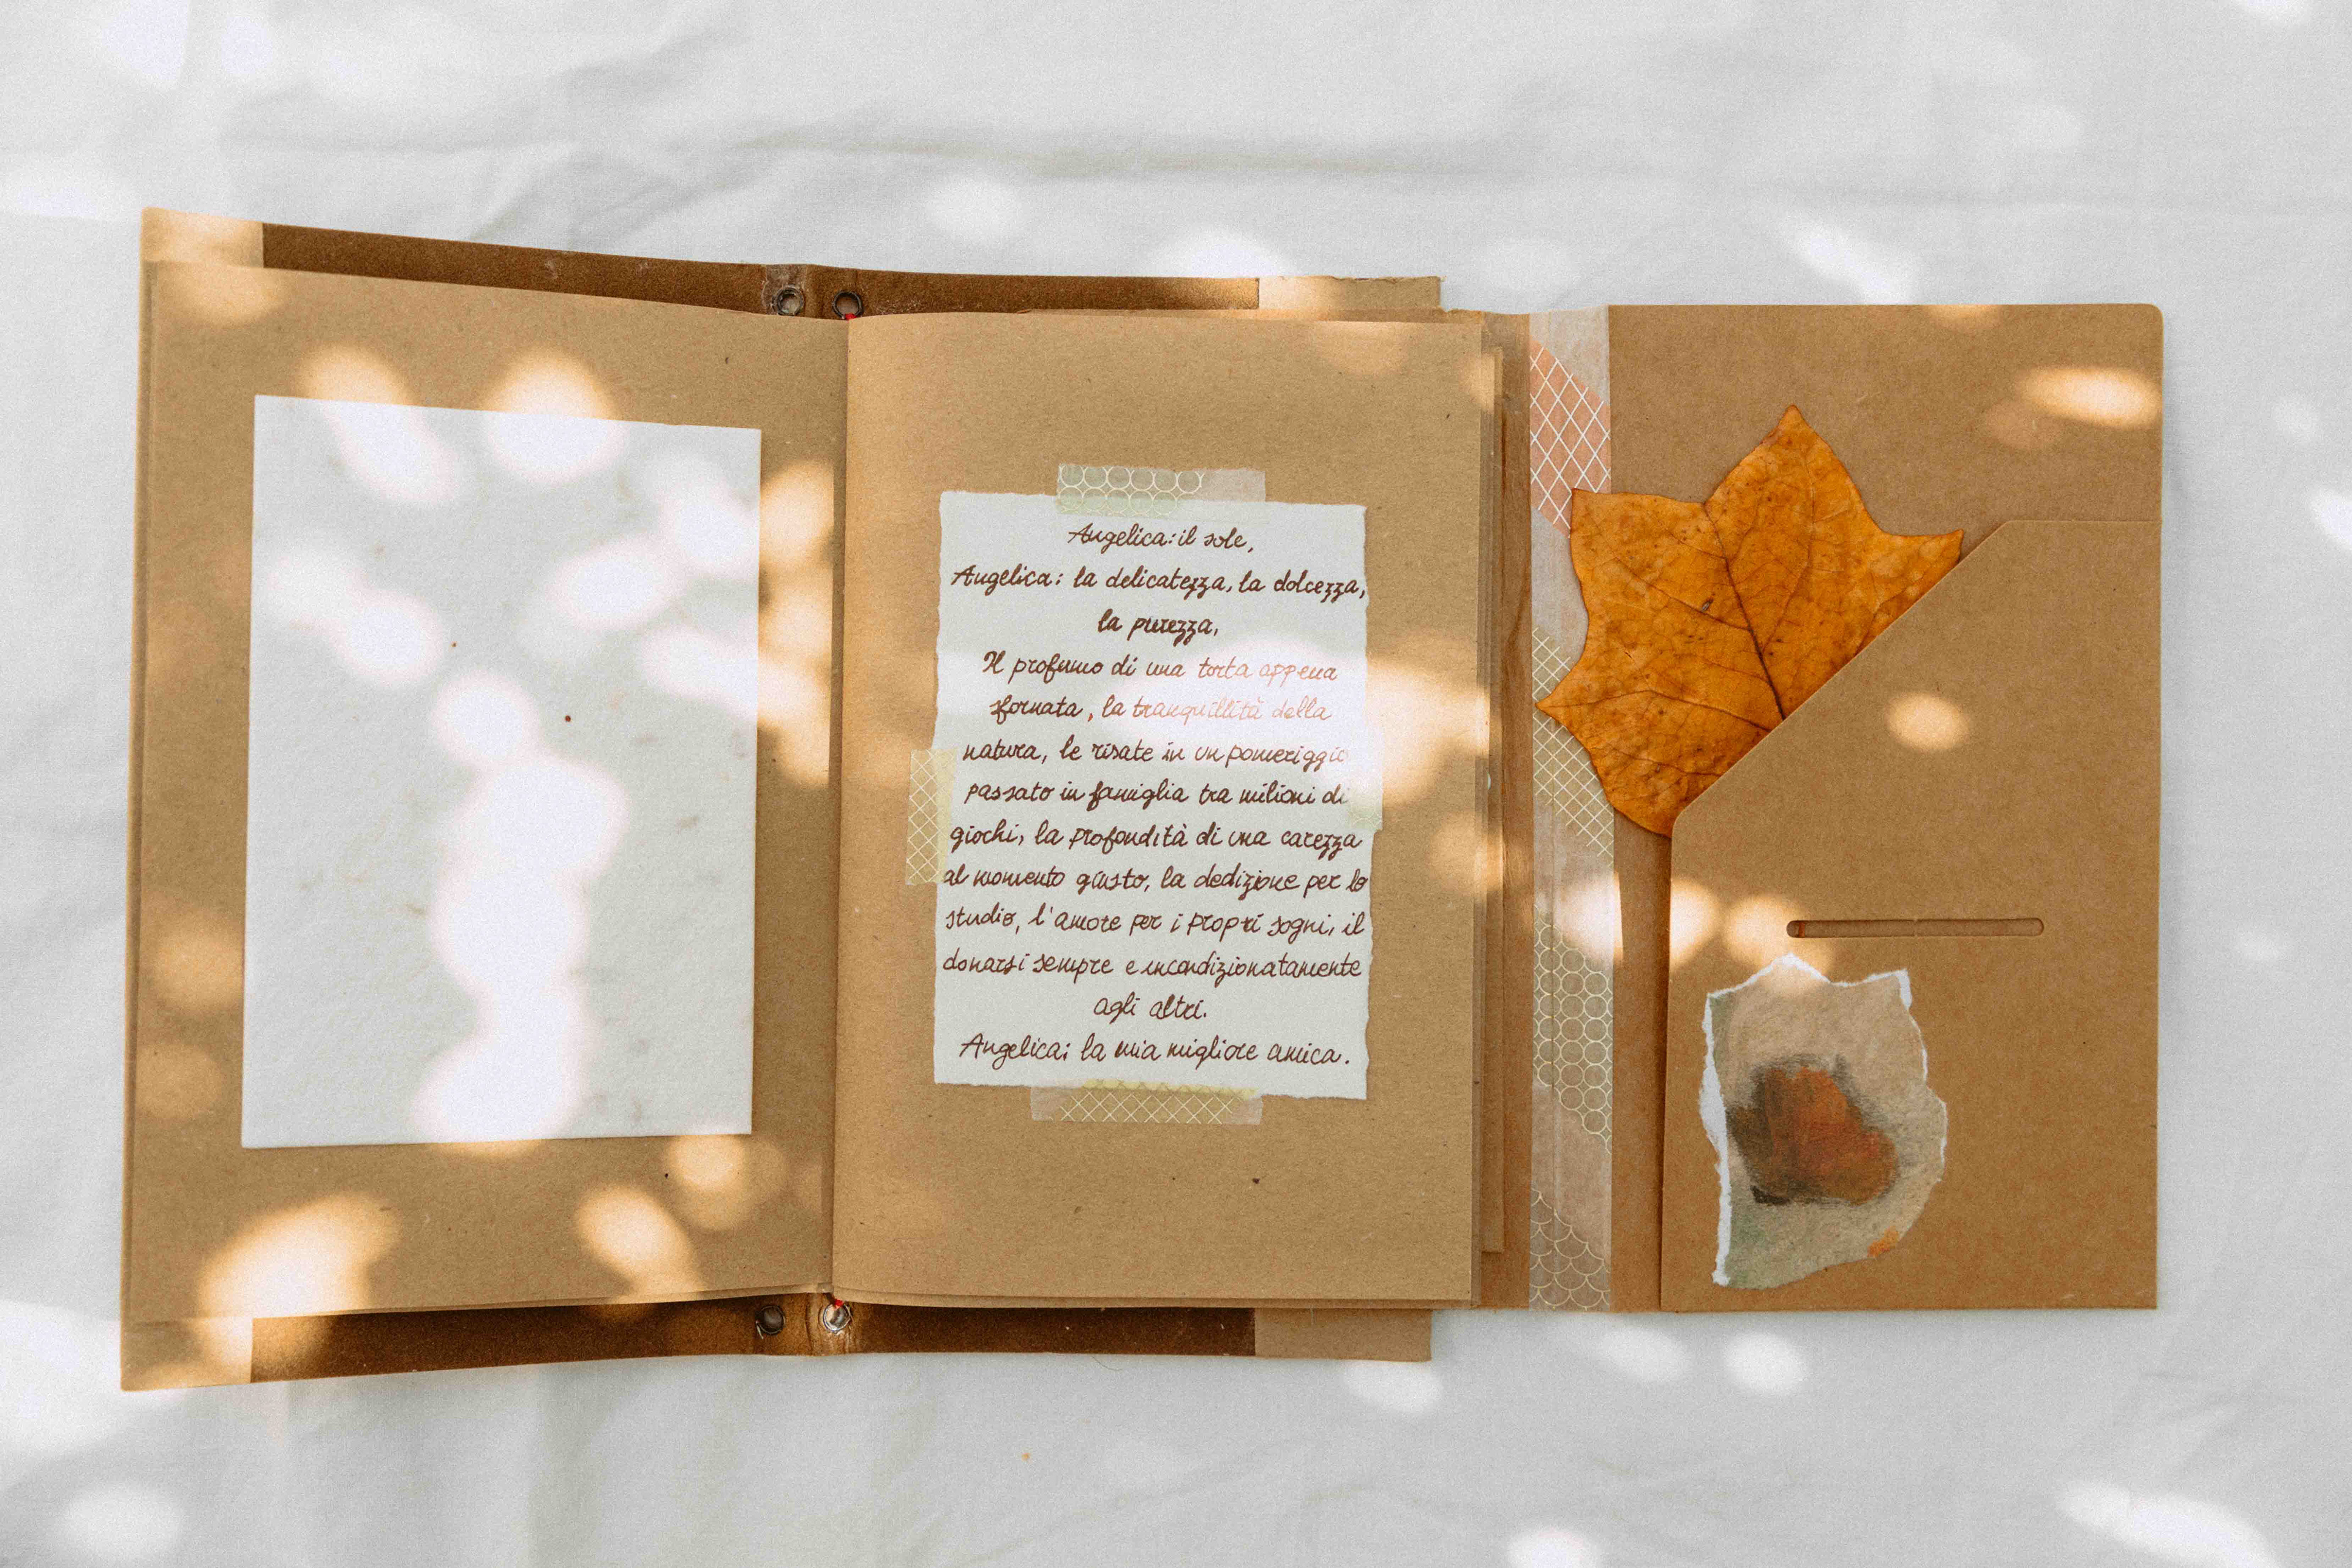 Angelica: il sole,
Angelica: la delicatezza, la dolcezza,
la purezza,
Il profumo di una torta appena
sfornata, la tranquillità della
natura, le risate in un pomeriggio
passato in famiglia tra milioni di
giochi, la profondità di una carezza
al momento giusto, la dedizione per lo
studio, l'amore per i propri sogni, il
donarsi sempre e incondizionatamente
agli altri.
Angelica: la mia migliore amica.